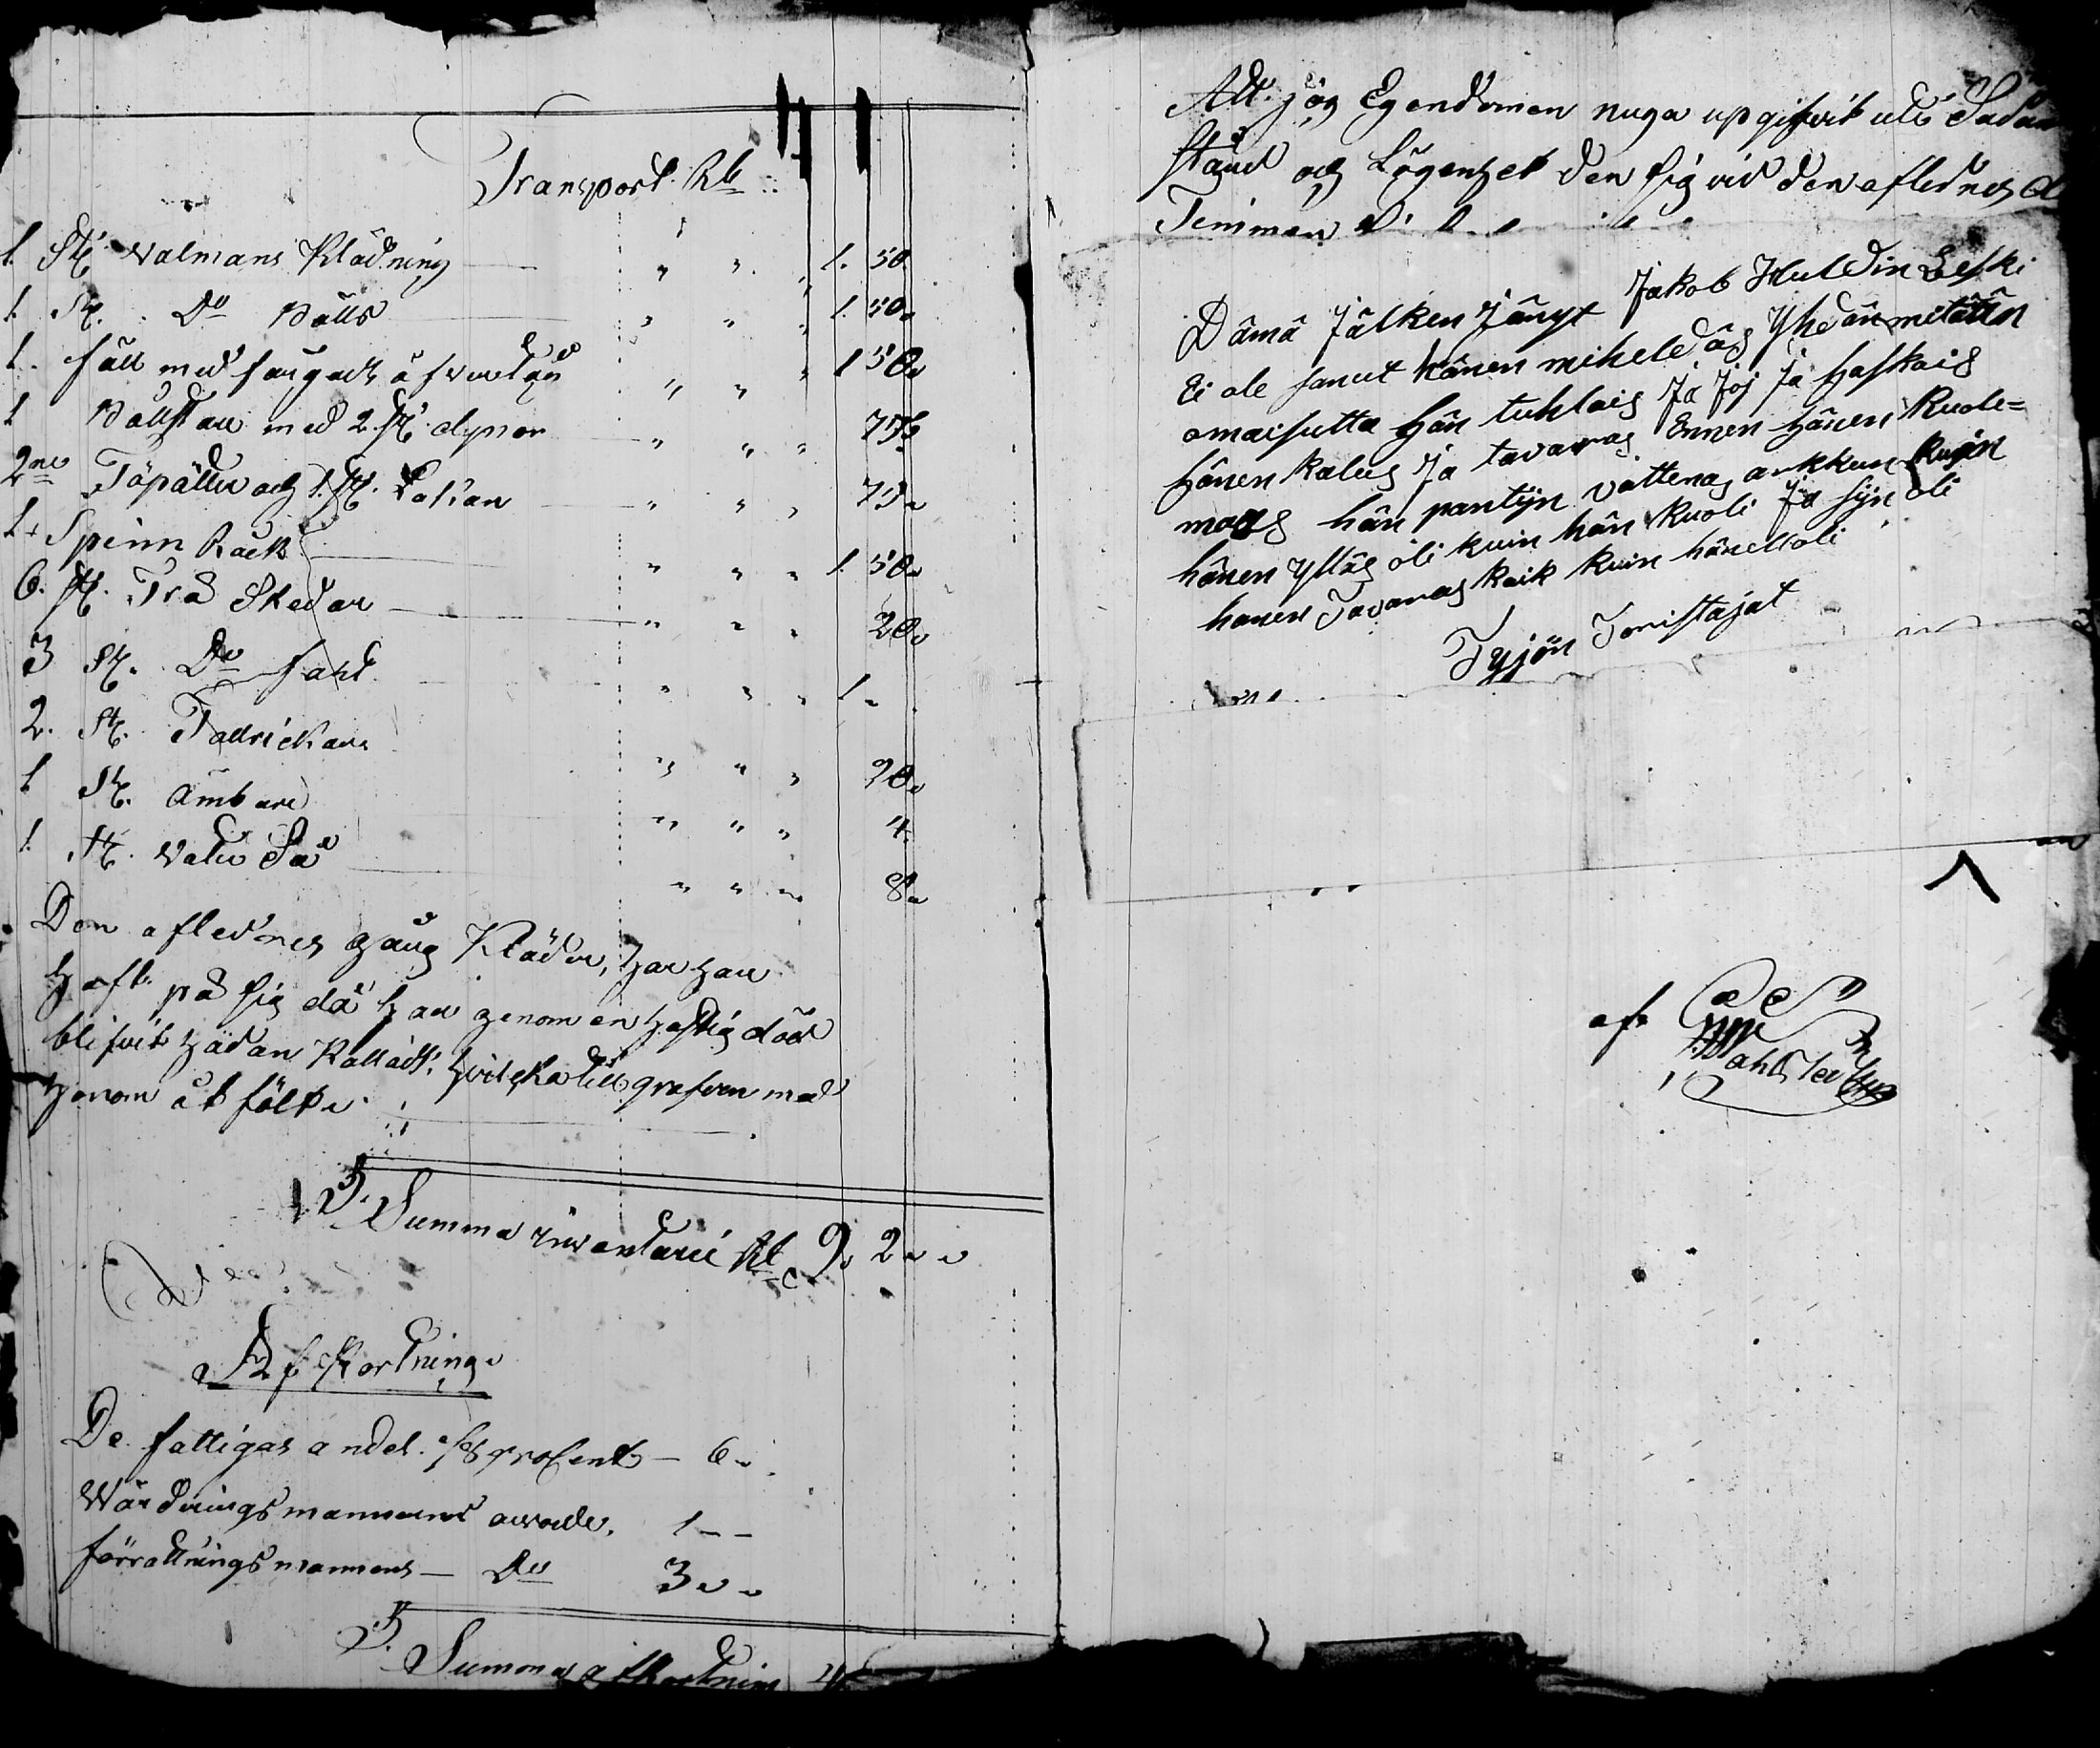 Transport Rb
1. St. Valmans Klädning " " " 1. 50.
1. St. Do Pälls " " " 1. 50.
1. fäll med " " " 1 50.
1 med 2. St. dynor " " " 75
2ne och 1. St. Lakan " " " 75.
1. Spinn Råck " " " 1. 50.
6. St. Trä Skedar " " " 20.
3 St. Do fakt " " " 1 -
2. St. Tallrickar " " " 20.
1 St. Ämbare " " " 4.
1. St. Såe " " " 8.
Den aflednes gång Kläder, har han
haft på sig då han genom en hastig död
blifvit hädan Kallad, hvilka till grafven med
honom åt följde.
S. Summa inventarii Rb 9. 2 " "
Afkortning.
De fattigas andel procent — 6 "
Wärderingsmannens arvode. 1 - -
förrättningsmannens — Do 3 " "
S. Summa afkortning 4
Att jag Egendomen noga upgifvit uti Sådan
stånd och Lägenhet den sig vid den aflednes
Timman
Dämä Jälken Jänyt Jakob Huldin Leski
Ei ole sanut hänen miheldäs Yhdän mitään
omaisutta hän tuhlais Ja Joj Ja haskais
hänen kalus Ja tavaras Ennen hänen Kuole=
mas hän pantijn vattenas arkkun kuin
hänen Ylläs oli kuin hän Kuoli Ja sijn oli
hänen Tavaras kaik kuin hänell oli
Tyjön Toristajat
af.